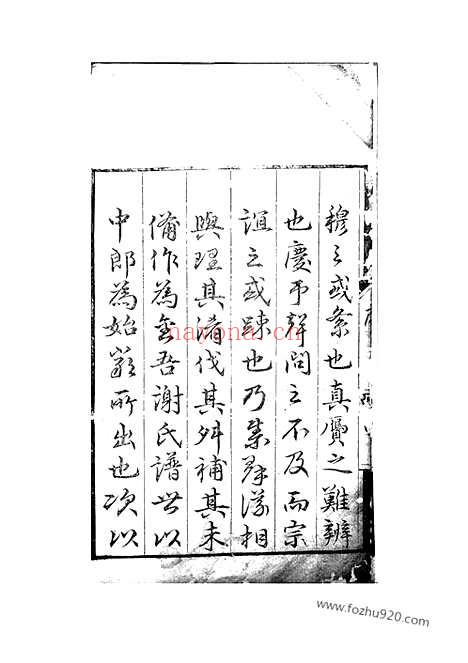 穆之或紊也真贗之難辨
也慶弔聲問之不及而宗
誼之或踈也乃集群議相
與理其淆伐其舛補其未
備作為金吾謝氏譜世以
中郎為始嚴所出也次以
nayona.cn
www.fozhu920.com